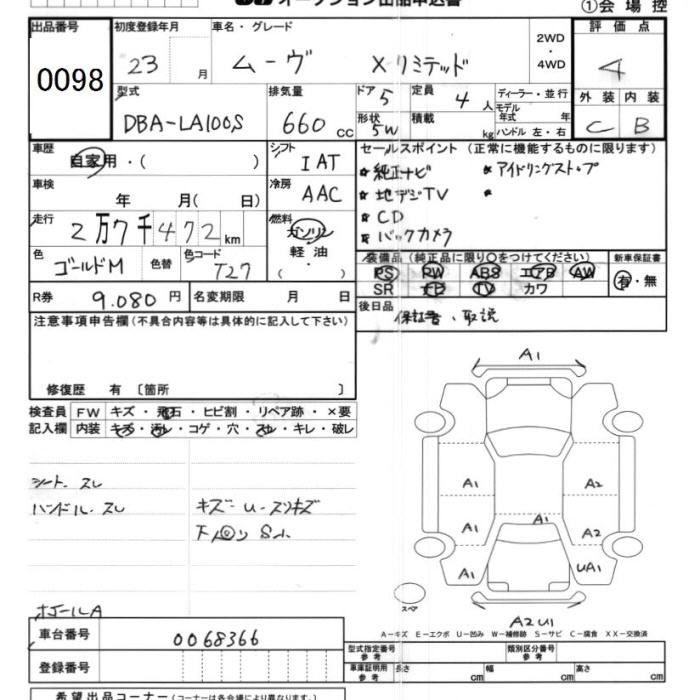 オークション出品申込書
①会場控
出品番号
0098
初度登録年月
23 月
車名・グレード
ムーヴ Xリミテッド
2WD
・
4WD
評価点
4
型式
DBA-LA100S
排気量
660 cc
ドア 5
形状 5W
定員 4 人
積載 kg
ディーラー・並行
モデル年式 年
ハンドル 左・右
外装 内装
C B
車歴
自家用・( )
シフト
IAT
車検
年 月( 日)
冷房
AAC
走行
2万7千472km
燃料
ガソリン
軽油
( )
色
ゴールドM
色替
色コード
T27
R券 9.080円
名変期限 月 日
セールスポイント(正常に機能するものに限ります)
★純正ナビ ★アイドリングストップ
★地デジTV ★
★CD
★バックカメラ
装備品(純正品に限り○をつけてください)
新車保証書
PS PW ABS エアB AW
SR ナビ TV カワ
有・無
後日品
保証書、取説
注意事項申告欄(不具合内容等は具体的に記入して下さい)
修復歴 有 〔箇所 〕
検査員 FW キズ・飛石・ヒビ割・リペア跡・×要
記入欄 内装 キズ・汚レ・コゲ・穴・スレ・キレ・破レ
シート スレ
ハンドル スレ
キズ-U-スリキズ
下回り S小
A1
A1
A2
A1
A1
A2
A1
UA1
スペア
A2U1
A-キズ E-エクボ U-凹み W-補修跡 S-サビ C-腐食 XX-交換済
車台番号 0068366
登録番号
型式指定番号
参考
類別区分番号
参考
車庫証明用
参考
長さ cm 幅 cm 高さ cm
希望出品コーナー(コーナーは各会場により異なります。)